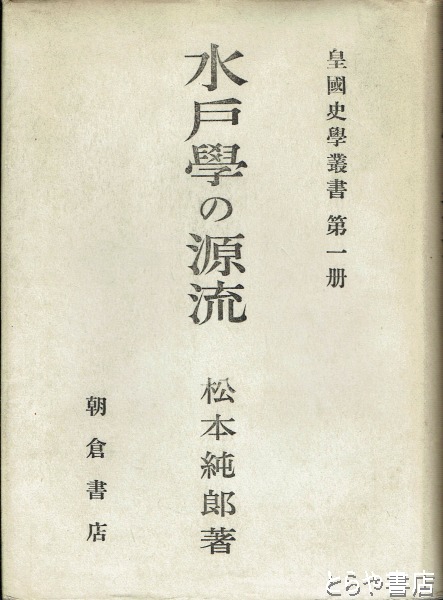 皇國史學叢書 第一册
水戶學の源流
松本純郎著
朝倉書店
とらや書店